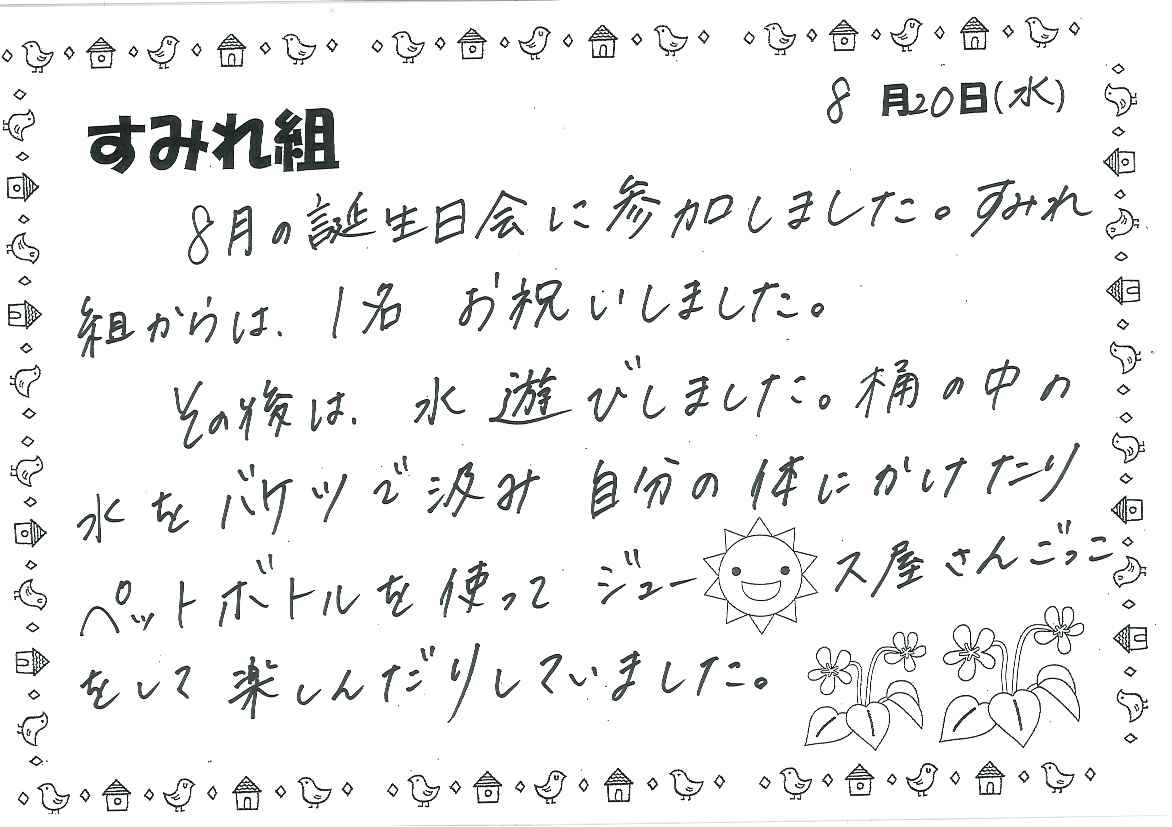 8月20日(水)
すみれ組
8月の誕生日会に参加しました。すみれ
組からは、1名 お祝いしました。
その後は、水遊びしました。桶の中の
水をバケツで汲み 自分の体にかけたり
ペットボトルを使って ジュース屋さんごっこ
をして楽しんだりしていました。